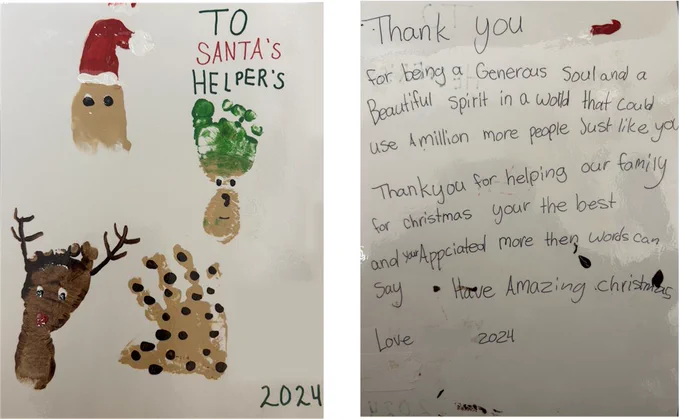 TO
SANTA'S
HELPER'S
2024
Thank you
for being a Generous Soul and a
Beautiful spirit in a wolld that could
use A million more people Just like you
Thankyou for helping our family
for christmas your the best
and your Appciated more then words can
Say Have Amazing christmas
Love 2024